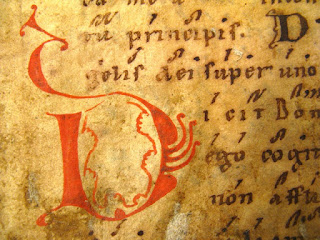 tu principis. D
gelis dei super uno
D icit Dom
ego cogit
non affli